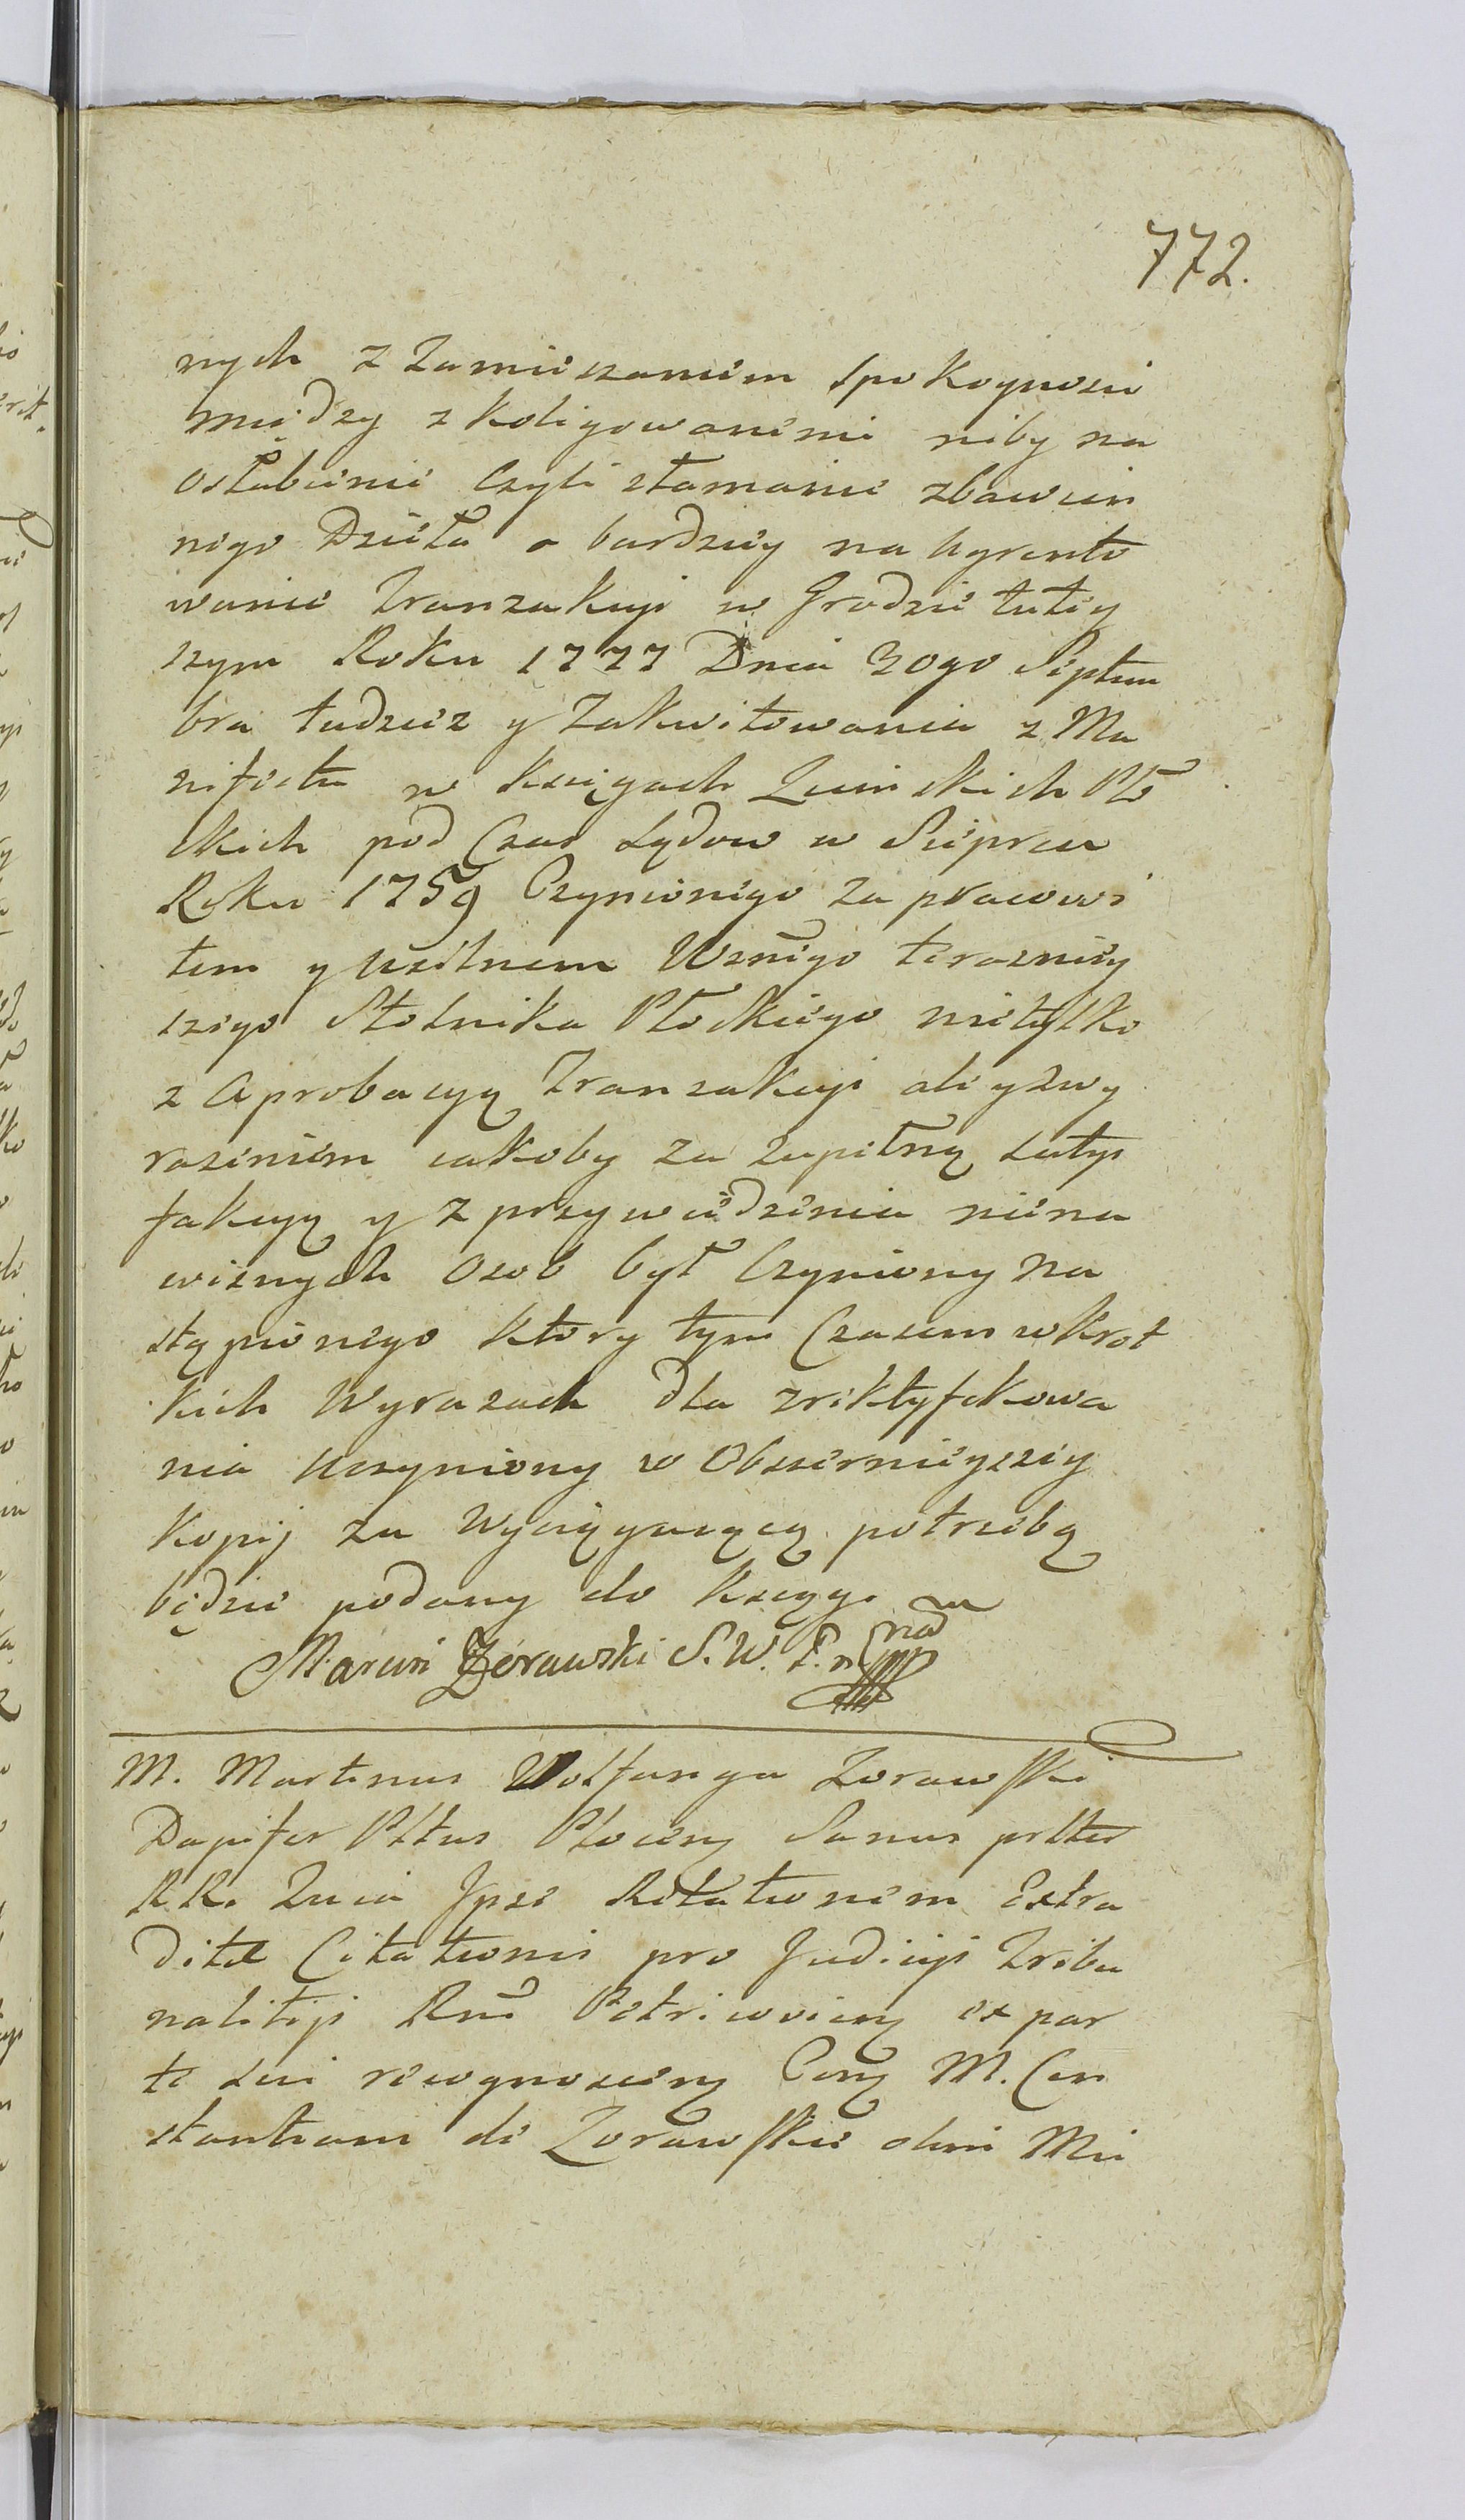 772.
nych z Zamieszaniem spokoynosci
między zkoligowanemi niby na
osłabienie Czyli złamanie zbawien
nego Dzieła a bardziey na Ugrunto
wanie Tranzakcyi w Grodzie tutey
szym Roku 1777 Dnia 30go Septem
bra tudziez y Zakwitowania z Ma
nifestu w Xsięgach Ziemskich Pło
ckich pod Czas Sądow w Sieprcu
Roku 1759 Czynionego za pracowi
tem y usilnem Wznego terazniey
szego Stolnika Płockiego nietylko
z Aprobacyą Tranzakcyi ale y z wy
razeniem iakoby za zupełną satys
fakcyą y z przywiedzenia niena
wisnych Osob był Czyniony na
stąpionego ktory tym Czasem w krot
kich Wyrazach dla zrektyfikowa
nia Uczyniony w Obszernieyszey
kopij za Wyciągaiącą potrzebą
będzie podany do Xsiąg.
Marcin Zorawski S. W. P. mp
M. Martinus Wolfanga Zorawski
Dapifer Pltus Plocen Sanus prlter
RR. Zncia Ipse Relationem Extra
ditæ Citationis pro Judicijs Tribu
nalitijs Rni Petricovien ex par
te sui recognoscen Cong M. Con
stantiam de Zorawskie olim Mci